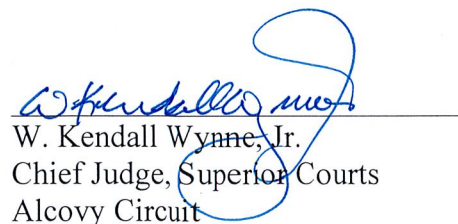 W. Kendall Wynne, Jr.
W. Kendall Wynne, Jr.
Chief Judge, Superior Courts
Alcovy Circuit